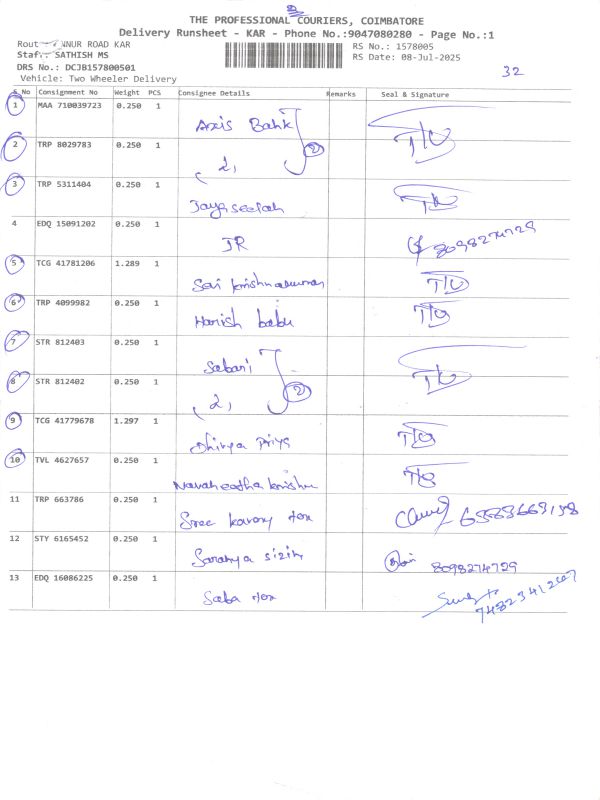 THE PROFESSIONAL COURIERS, COIMBATORE
Delivery Runsheet - KAR - Phone No.:9047080280 - Page No.:1
NNUR ROAD KAR
RS No.: 1578005
Staff: SATHISH MS
RS Date: 08-Jul-2025
DRS No.: DCJB157800501
32
Vehicle: Two Wheeler Delivery
S No Consignment No Weight PCS Consignee Details Remarks Seal & Signature
1 MAA 710039723 0.250 1 Axis Bank
2 TRP 8029783 0.250 1 2, 2 T/O
3 TRP 5311404 0.250 1
4 EDQ 15091202 0.250 1 JR 8098274729
5 TCG 41781206 1.289 1 T/O
6 TRP 4099982 0.250 1 Harish babu T/O
7 STR 812403 0.250 1 Sabari
8 STR 812402 0.250 1 2, 2 T/O
9 TCG 41779678 1.297 1 Dhivya Priya T/O
10 TVL 4627657 0.250 1 T/O
11 TRP 663786 0.250 1 Sree
12 STY 6165452 0.250 1 Saranya 8098274729
13 EDQ 16086225 0.250 1 Saba